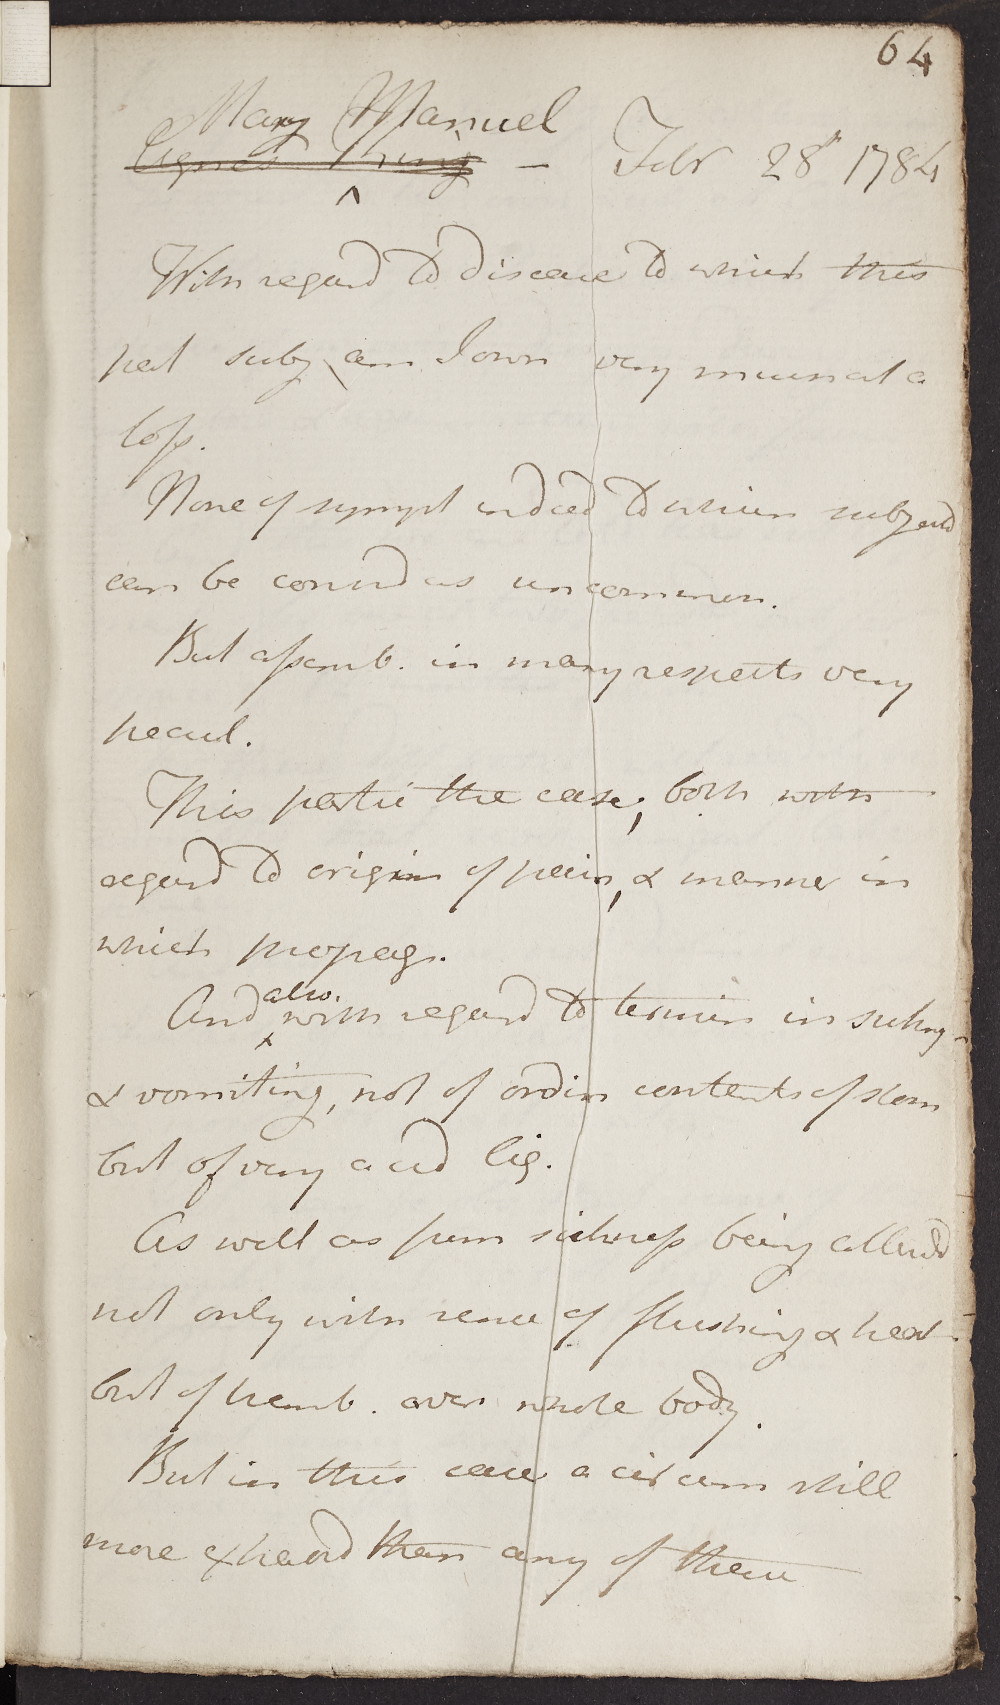 64
Mary Manuel
Agnes Thing - Febr 28th 1784
With regard to disease to which this
pat subj am I own very much at a
loss.
None of sympt indeed to which subjectd
can be consid as uncommon.
But assemb. in many respects very
pecul.
This partic the case, both with
regard to origin of pain, & manner in
which propag.
And also with regard to termin in sickng
& vomiting, not of ordin contents of stom
but of very acid liq.
As well as from sickness being attendd
not only with sense of flushing & heat
but of tremb. over whole body.
But in this case a circum still
more extraord than any of these